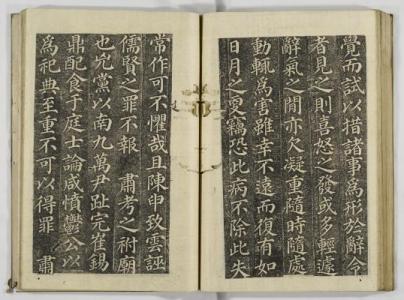 覺而試以措諸事爲形於辭令
者見之則喜怒之發或多輕遽
辭氣之間亦欠凝重隨時隨處
動輒爲害雖幸不遠而復有如
日月之更竊恐此病不除此失
常作可不懼哉且陳申致雲誣
儒賢之罪不報 肅考之祔廟
也光黨以南九萬尹趾完崔錫
鼎配食于庭士論咸憤鬱公以
爲祀典至重不可以得罪 肅